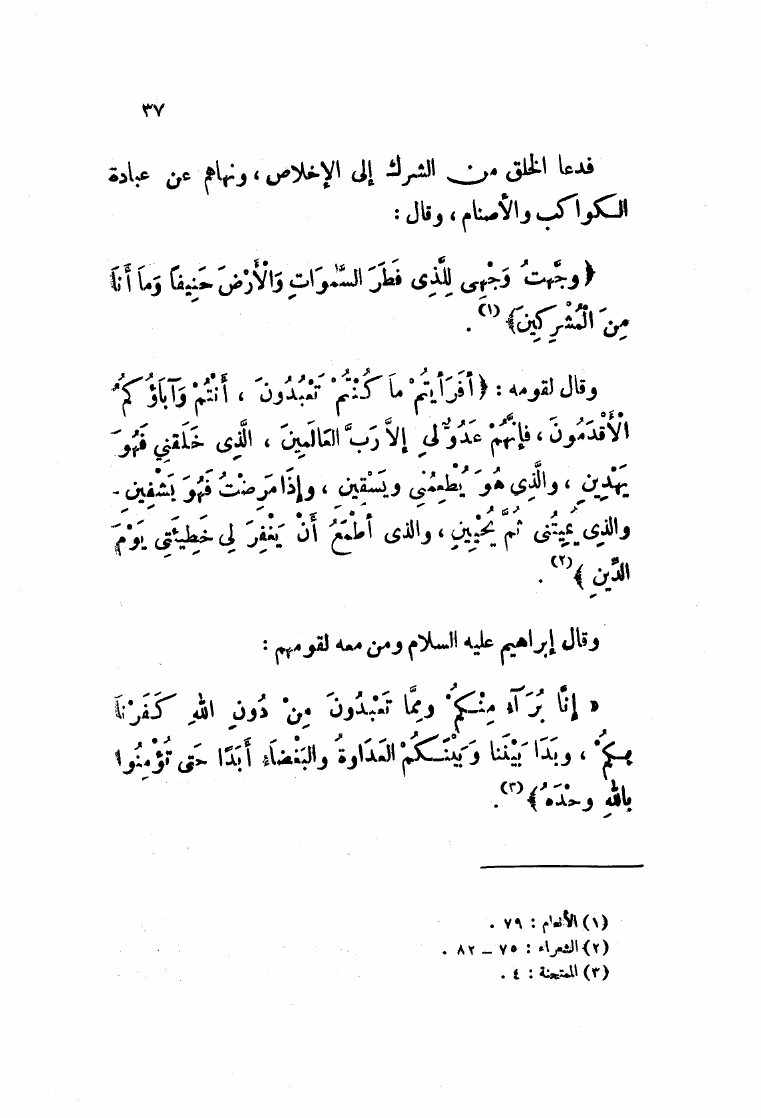 ٣٧
فدعا الخلق من الشرك إلى الإخلاص ، ونهاهم عن عبادة
الكواكب والأصنام ، وقال :
﴿ وجَّهتُ وَجْهِى لِلَّذِى فَطَرَ السَّمٰوَاتِ وَالْأَرْضَ حَنِيفاً وَمَا أَنَا
مِنَ الْمُشْرِكِينَ﴾ (١) .
وقال لقومه : ﴿ أَفَرَأَيتُمْ مَا كُنْتُمْ تَعْبُدُونَ ، أَنْتُمْ وَآبَاؤُكُمُ
الْأَقْدَمُونَ ، فإِنَّهُمْ عَدُوٌّ لِي إِلاَّ رَبَّ العَالَمِينَ ، الَّذِى خَلَقَنِي فَهُوَ
يَهْدِينِ ، والَّذِى هُوَ يُطْعِمُنِى ويَسْقِينِ ، وإِذَا مَرِضْتُ فَهُوَ يَشْفِينِ -
والذِى يُمِيتُنِى ثُمَّ يُحْيِينِ ، والذى أطْمَعُ أَنْ يَغْفِرَ لِى خَطِيئَتِى يَوْمَ
الدِّينِ ﴾ (٢) .
وقال إبراهيم عليه السلام ومن معه لقومهم :
« إِنَّا بُرَآءُ مِنْكُمْ ومِمَّا تَعْبُدُونَ مِنْ دُونِ اللهِ كَفَرْنَا
بِكُمْ ، وبَدَا بَيْنَنَا وَبَيْنَكُمُ العَدَاوةُ والبَغْضَاءُ أَبَدًا حَتى تُؤْمِنُوا
بِاللهِ وحْدَهُ ﴾ (٣) .
(١) الأنعام : ٧٩ .
(٢) الشعراء : ٧٥ – ٨٢ .
(٣) الممتحنة : ٤ .